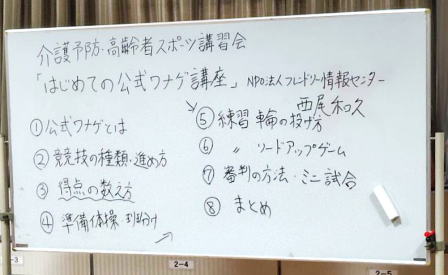 介護予防・高齢者スポーツ講習会
「はじめての公式ワナゲ講座」 NPO法人フレンドリー情報センター
西尾和久
①公式ワナゲとは
②競技の種類・進め方
③得点の数え方
④準備体操
⑤練習 輪の投げ方
⑥ 〃 リードアップゲーム
⑦審判の方法・ミニ試合
⑧まとめ
2-4
2-5